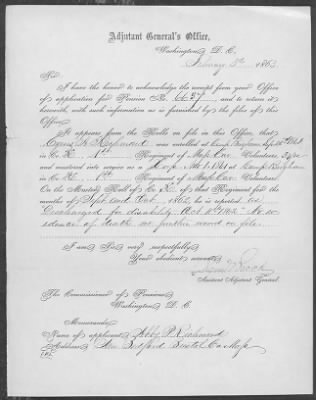 Adjutant General's Office,
Washington, D. C.
February 5th, 1863
Sir:
I have the honor to acknowledge the receipt from your Office
of application for Pension No. 6627, and to return it
herewith, with such information as is furnished by the files of
this Office.
It appears from the Rolls on file in this Office, that
Cyrus W. Richmond was enrolled at Camp Brigham, Sept 16th 1861
in Co. K, 1st Regiment of Mass Cav Volunteers,
and mustered into service as a at Camp Brigham
in Co. K, 1st Regiment of Mass Cav Volunteers.
On the Muster Roll of Co. K, of that Regiment for the
months of Sept and Oct, 1862, he is reported
Discharged for disability Oct 1862. No
evidence of death no further record on file.
I am, Sir, very respectfully,
Your obedient servant,
Assistant Adjutant General.
The Commissioner of Pensions
Washington, D. C.
Memoranda:
Name of applicant, Abby P. Richmond
Address, New Bedford Bristol Co. Mass